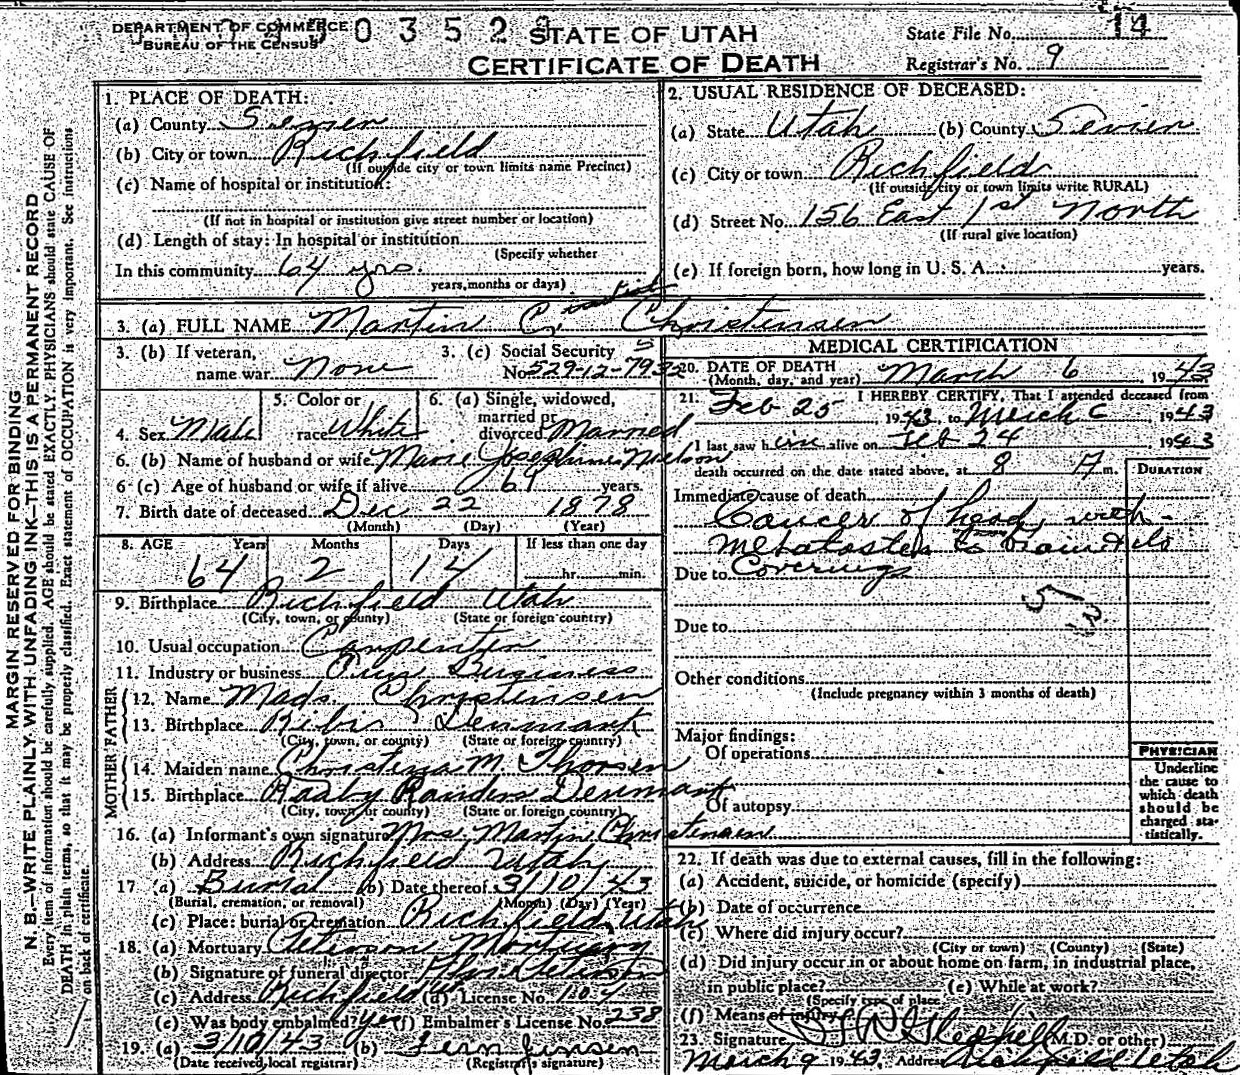 DEPARTMENT OF COMMERCE
BUREAU OF THE CENSUS
0 3 5 2
STATE OF UTAH
CERTIFICATE OF DEATH
State File No. 14
Registrar's No. 9
MARGIN RESERVED FOR BINDING
N. B.—WRITE PLAINLY WITH UNFADING INK—THIS IS A PERMANENT RECORD
Every item of information should be carefully supplied. AGE should be stated EXACTLY. PHYSICIANS should state CAUSE OF
DEATH in plain terms, so that it may be properly classified. Exact statement of OCCUPATION is very important. See instructions
on back of certificate.
1. PLACE OF DEATH:
(a) County Sevier
(b) City or town Richfield
(If outside city or town limits name Precinct)
(c) Name of hospital or institution:
(If not in hospital or institution give street number or location)
(d) Length of stay: In hospital or institution
(Specify whether
In this community 64 yrs.
years, months or days)
2. USUAL RESIDENCE OF DECEASED:
(a) State Utah (b) County Sevier
(c) City or town Richfield
(If outside city or town limits write RURAL)
(d) Street No. 156 East 1st North
(If rural give location)
(e) If foreign born, how long in U. S. A. years.
3. (a) FULL NAME Martin C. Christensen
3. (b) If veteran,
name war None
3. (c) Social Security
No. 529-12-793
4. Sex Male
5. Color or
race White
6. (a) Single, widowed,
married or
divorced Married
6. (b) Name of husband or wife Marie Josephine Nielson
6 (c) Age of husband or wife if alive 64 years.
7. Birth date of deceased Dec 22 1878
(Month) (Day) (Year)
8. AGE Years Months Days If less than one day
64 2 14 hr. min.
9. Birthplace Richfield Utah
(City, town, or county) (State or foreign country)
10. Usual occupation Carpenter
11. Industry or business Business
FATHER
12. Name Mads Christensen
13. Birthplace Denmark
(City, town, or county) (State or foreign country)
MOTHER
14. Maiden name Christena M. Thorsen
15. Birthplace Randers Denmark
(City, town, or county) (State or foreign country)
16. (a) Informant's own signature Mrs. Martin Christensen
(b) Address Richfield Utah
17 (a) Burial (b) Date thereof 3/10/43
(Burial, cremation, or removal) (Month) (Day) (Year)
(c) Place: burial or cremation Richfield, Utah
18. (a) Mortuary Mortuary
(b) Signature of funeral director
(c) Address Richfield (d) License No. 104
(e) Was body embalmed? Yes (f) Embalmer's License No. 238
19. (a) 3/10/43 (b) Fern Jensen
(Date received local registrar) (Registrar's signature)
MEDICAL CERTIFICATION
20. DATE OF DEATH
(Month, day, and year) March 6, 1943
21. I HEREBY CERTIFY, That I attended deceased from
Feb 25 1943 to March 6 1943
I last saw him alive on Feb 24 1943
death occurred on the date stated above, at 8 m.
DURATION
Immediate cause of death
Cancer of head, with
metatastes to brain & its
Due to Coverings
Due to
Other conditions
(Include pregnancy within 3 months of death)
Major findings:
Of operations
Of autopsy
PHYSICIAN
Underline
the cause to
which death
should be
charged sta-
tistically.
22. If death was due to external causes, fill in the following:
(a) Accident, suicide, or homicide (specify)
(b) Date of occurrence
(c) Where did injury occur?
(City or town) (County) (State)
(d) Did injury occur in or about home on farm, in industrial place,
in public place? (e) While at work?
(Specify type of place
(f) Means of injury
23. Signature (M.D. or other)
March 9 1943, Address Richfield Utah